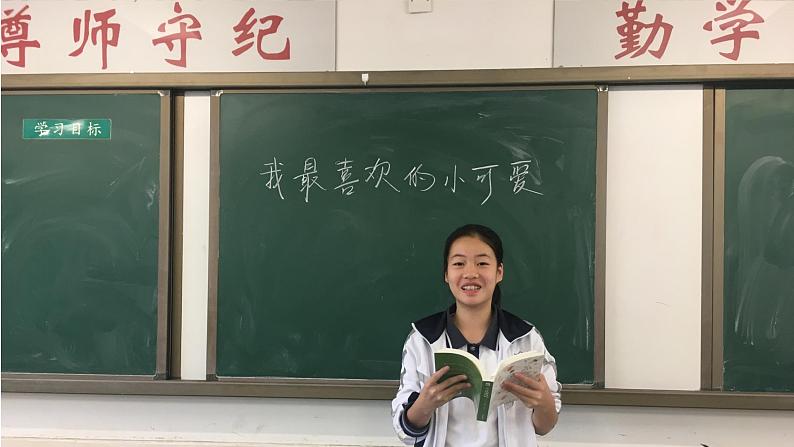 尊师守纪
勤学
学习目标
我最喜欢的小可爱